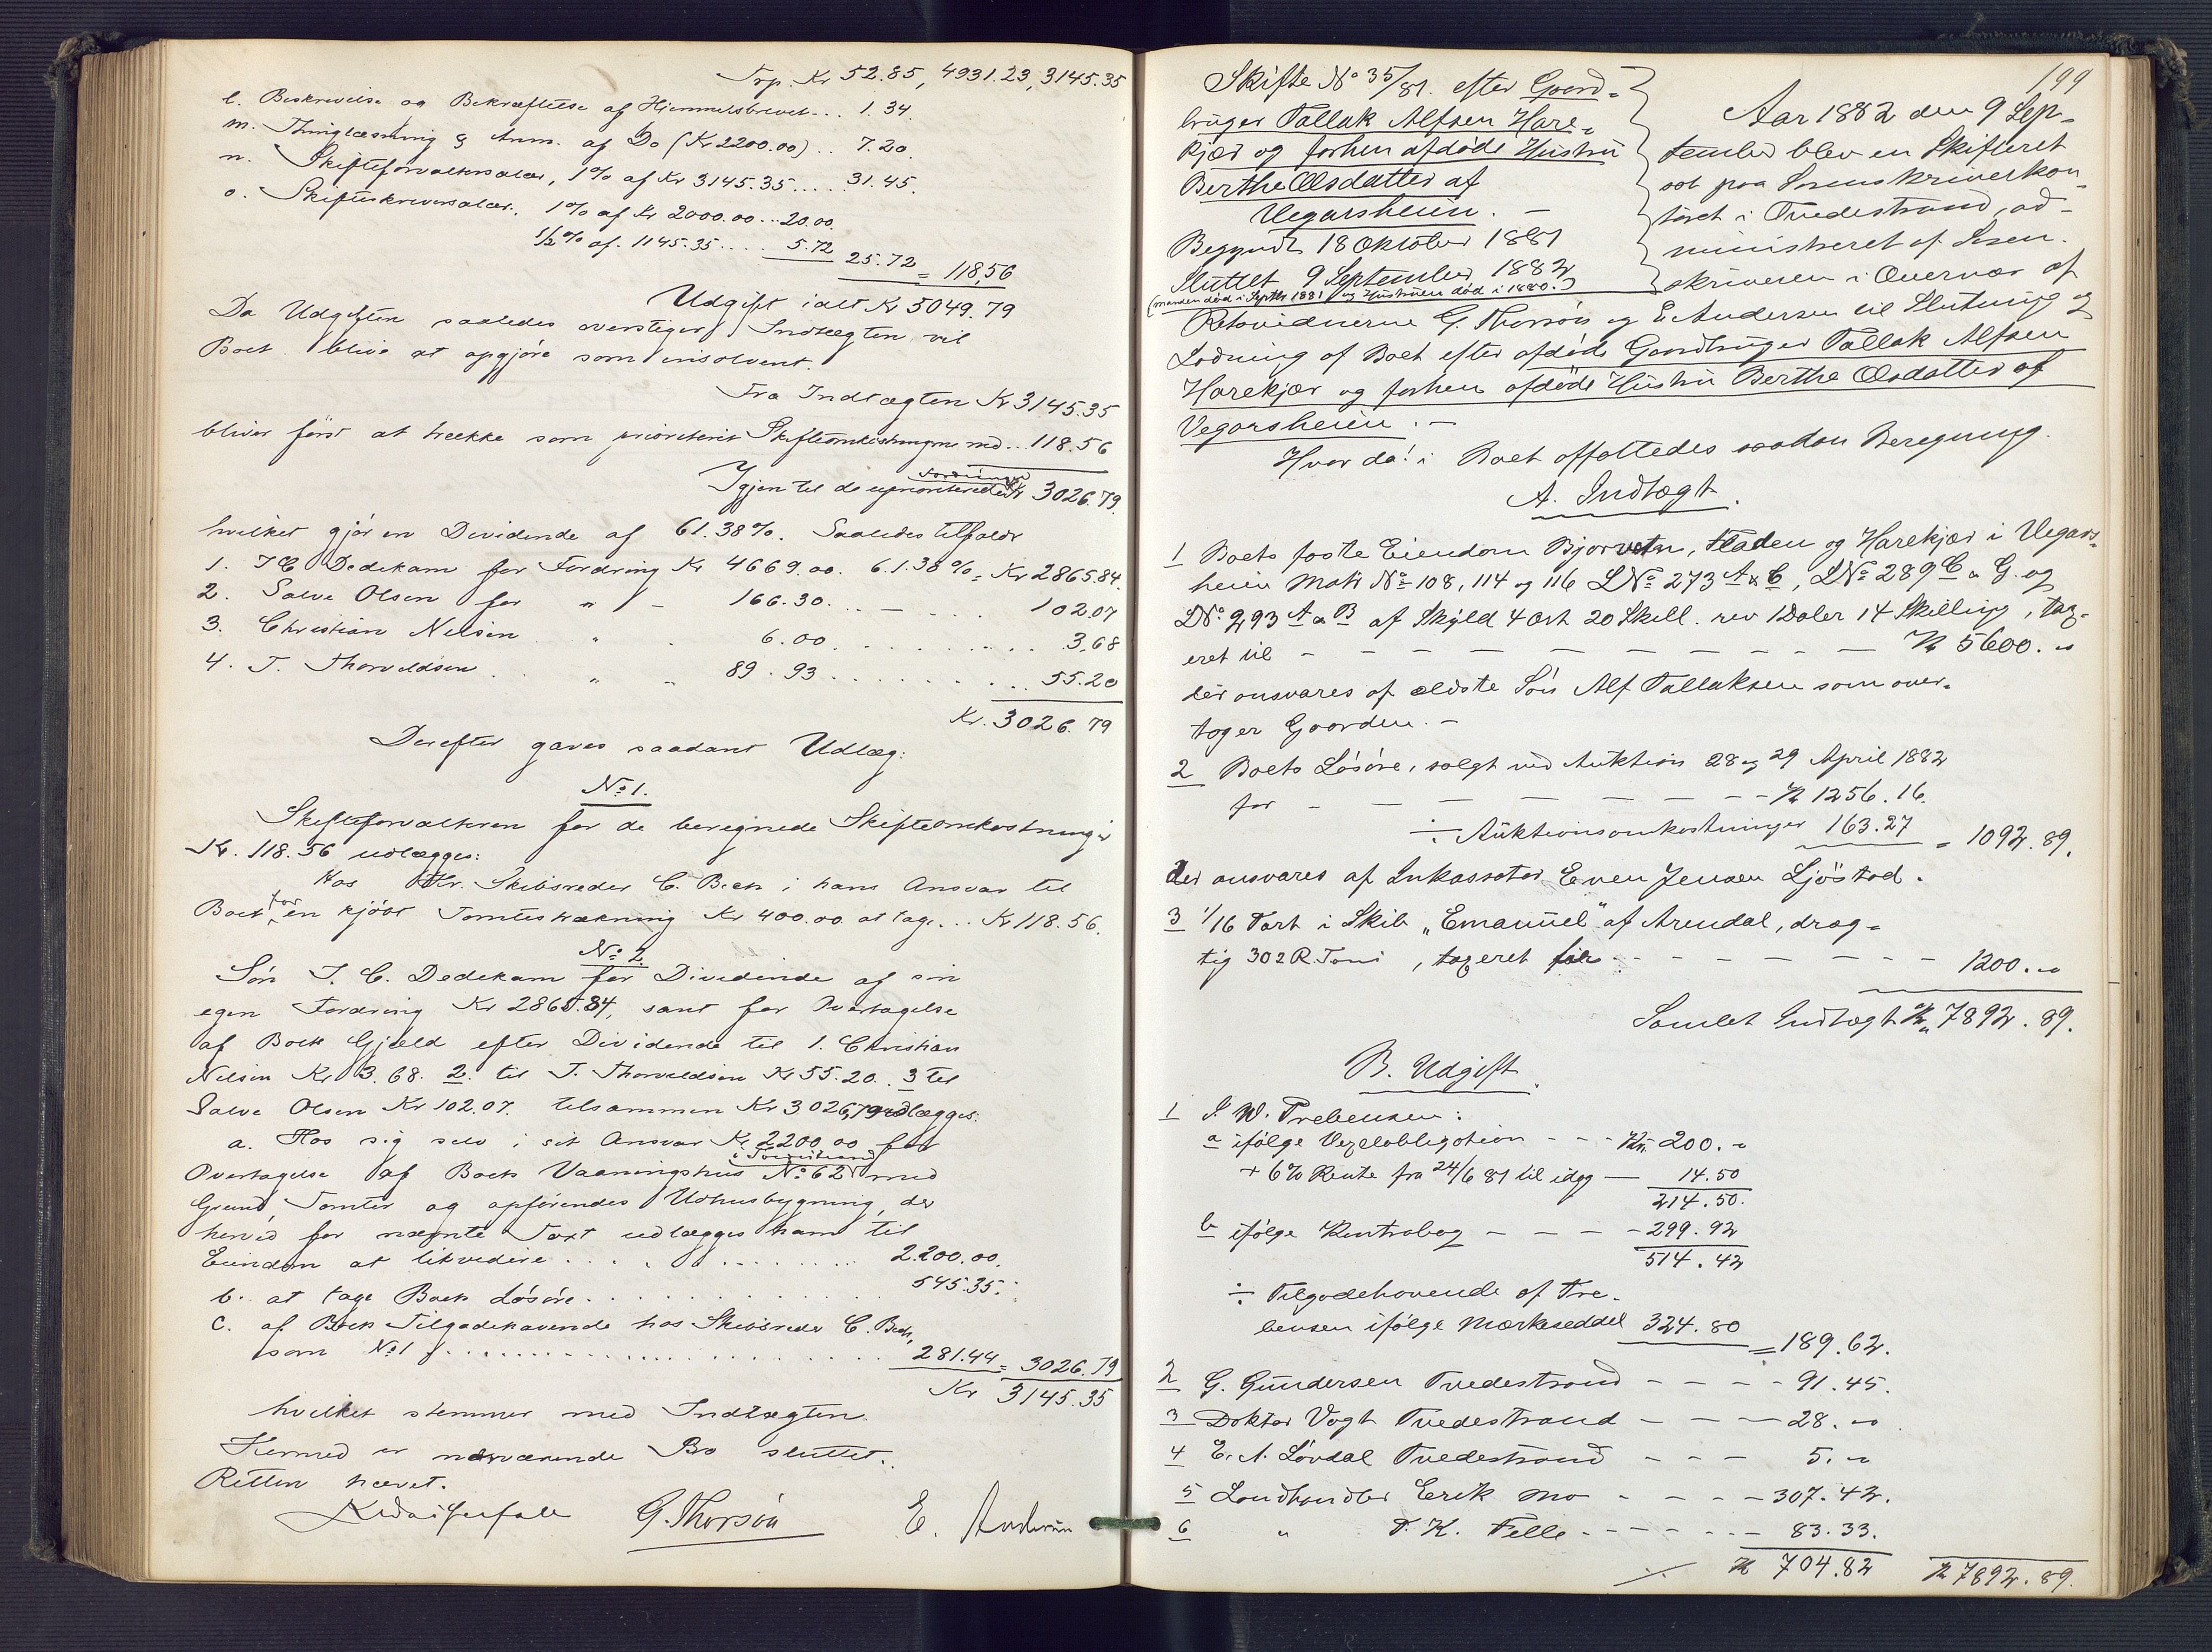 Trp. Kr 52.85, 4931.23, 3145.35
l. Beskrivelse og Bekræftelse af Hjemmelsbrevet... 1.34.
m. Thinglæsning & Anm. af Do (Kr 2200.00).. 7.20.
n. Skifteforvaltersalær, 1% af Kr 3145.35.... 31.45.
o. Skifteskriversalær. 1% af Kr 2000.00... 20.00.
½% af. 1145.35.... 5.72 25.72 = 118,56
Udgift ialt Kr 5049.79
Da Udgiften saaledes overstiger Indtægten vil
Boet blive at opgjöre som insolvent.
Fra Indtægten Kr 3145.35
bliver først at trække som prioriterit Skifteomkostningene med.. 118.56
Fordringer
Igjen til de uprioriterede Kr 3026.79.
hvilket gjör en Dividende af 61.38%. Saaledes tilfalder
1. J C Dedekam for Fordring Kr 4669.00. 61.38% = Kr 2865.84.
2. Salve Olsen for " - 166.30... - . . . 102.07
3. Christian Nelsen " . 6.00. . . . . . . . . 3,68
4. T. Thorvaldsen . . " " 89.93. . . . . . . . . 55.20
Kr. 3026.79
Derefter gaves saadant Udlæg:
No 1.
Skifteforvalteren for de beregnede Skifteomkostninger
Kr. 118.56 udlægges:
Hos Hr. Skibsreder C. Bech i hans Ansvar til
Boet for en kjöbt Tomtestrækning Kr 400.00 at tage... Kr 118.56.
No 2.
Sön J. C. Dedekam for Dividende af sin
egen Fordring Kr 2865.84, samt for Overtagelse
af Boets Gjæld efter Dividende til 1. Christian
Nelsen Kr 3.68. 2. til T. Thorvaldsen Kr 55.20. 3 til
Salve Olsen Kr 102.07. tilsammen Kr 3026,79 udlægges:
a. Hos sig selv i sit Ansvar Kr 2200.00 for
i Tvedestrand
Overtagelse af Boets Vaaningshus No 62 med
Grund, Tomter og opförendes Udhusbygning, der
herved for nævnte Taxt udlægges ham til
Eiendom at likvidere . . . . . . . . . . . . 2.200.00.
b. at tage Boets Lösöre. . . . . . . . . . . . 545.35.
c. af Boets Tilgodehavende hos Skibsreder C. Bech,
som No 1 . . . . . . . . . . . . . . . 281.44 = 3026.79
Kr 3145.35
hvilket stemmer med Indtægten.
Hermed er nærværende Bo sluttet.
Retten hævet.
G. Thorsön E. Andersen
199
Skifte No 35/81. efter Gaard-
bruger Tallak Alfsen Hare-
kjær og forhen afdöde Hustru
Berthe Olsdatter af
Vegarsheien. -
Begyndt 18 Oktober 1881
Sluttet 9 September 1882
(manden död i Septbr 1881 og Hustruen död i 1880.)
Aar 1882 den 9 Sep-
tember blev en Skifteret
sat paa Sorenskriverkon-
töret i Tvedestrand, ad-
ministreret af Soren-
skriveren i Overvær af
Retsvidnerne G. Thorsön og E. Andersen til Slutning og
Lodning af Boet efter afdöde Gaardbruger Tallak Alfsen
Harekjær og forhen afdöde Hustru Berthe Olsdatter af
Vegarsheien. -
Hvor da! i Boet affattedes saadan Beregning.
A. Indtægt.
1 Boets faste Eiendom Bjorvatn, Staden og Harekjær i Vegars-
heien Matr No 108, 114 og 116 LNo 273 A & C, LNo 289 C & G. og
LNo 293 A & B af Skyld 4 Ort 20 Skill. rev 1 Daler 14 Skilling, tax-
eret til - - - - - - - - - - - Kr 5600. "
der ansvares af ældste Sön Alf Tallaksen som over-
tager Gaarden. -
2 Boets Lösöre, solgt ved Auktion 28 og 29 April 1882
for - - - - - - - - Kr 1256.16.
÷ Auktionsomkostninger 163.27 = 1092.89.
der ansvares af Inkassator Even Jensen Ljöstad.
3 1/16 Part i Skib "Emanuel" af Arendal, dræg-
tig 302 R. Tons , taxeret for - - - - - - - 1200. "
Samlet Indtægt Kr 7892.89.
B. Udgift.
1 J. W. Prebensen:
a ifölge Vexelobligation - - - Kr. 200. "
+ 6% Rente fra 24/6 81 til idag — 14.50
214.50.
b ifölge Kontrabog - - - - 299.92
514.42
÷ Tilgodehavende af Pre-
bensen ifölge Mærkeseddel 324.80 = 189.62.
2 G. Gundersen Tvedestrand - - - - 91.45.
3 Doktor Vogt Tvedestrand - - - 28. "
4 E. A. Lövdal Tvedestrand - - - 5. "
5 Landhandler Erik Mo - - - - 307.42.
6 " T. K. Felle - - - - - - 83.33.
÷ Kr 704.82 Kr 7892.89.